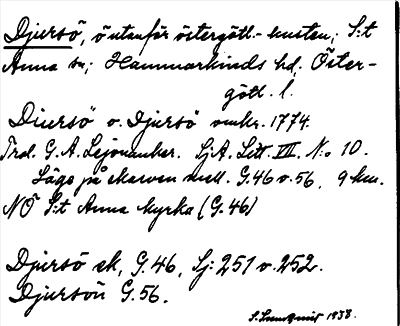 Djursö, ö utanför östergötl. kusten; S:t
Anna sn; Hammarkinds hd, Öster-
götl. l.
Diursö o. Djursö omkr. 1774.
Trol. G. A. Lejonanker. SjA. Litt. VII. N:o 10.
Läge på skärven mell. G.46 o. 56, 9 km.
NÖ S:t Anna kyrka (G.46)
Djursö sk, G.46, Sj: 251 o. 252.
Djursön G.56.
1938.